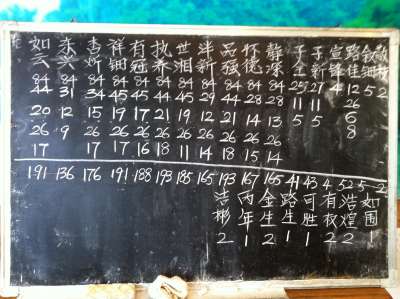 如云 东兴 杏娇 祥钿 有冠 执养 世湘 半新 品强 怀德 静深 子全 子新 宣锋 路佳 钿
84 84 84 84 84 84 84 84 84 84 84 25 27 4 12 5 2
44 31 34 45 45 44 45 29 44 28 28 11 11 26
20 12 15 19 17 21 19 12 21 14 13 5 5 6
26 9 26 26 26 26 26 26 26 26 26 8
17 17 17 16 18 11 14 18 15 14
191 136 176 191 188 193 185 165 193 167 165 41 43 4 52 5 2
洁彬 丙年 金生 路生 可胜 有权 浩煌 如围
2 1 2 1 1 2 2 1